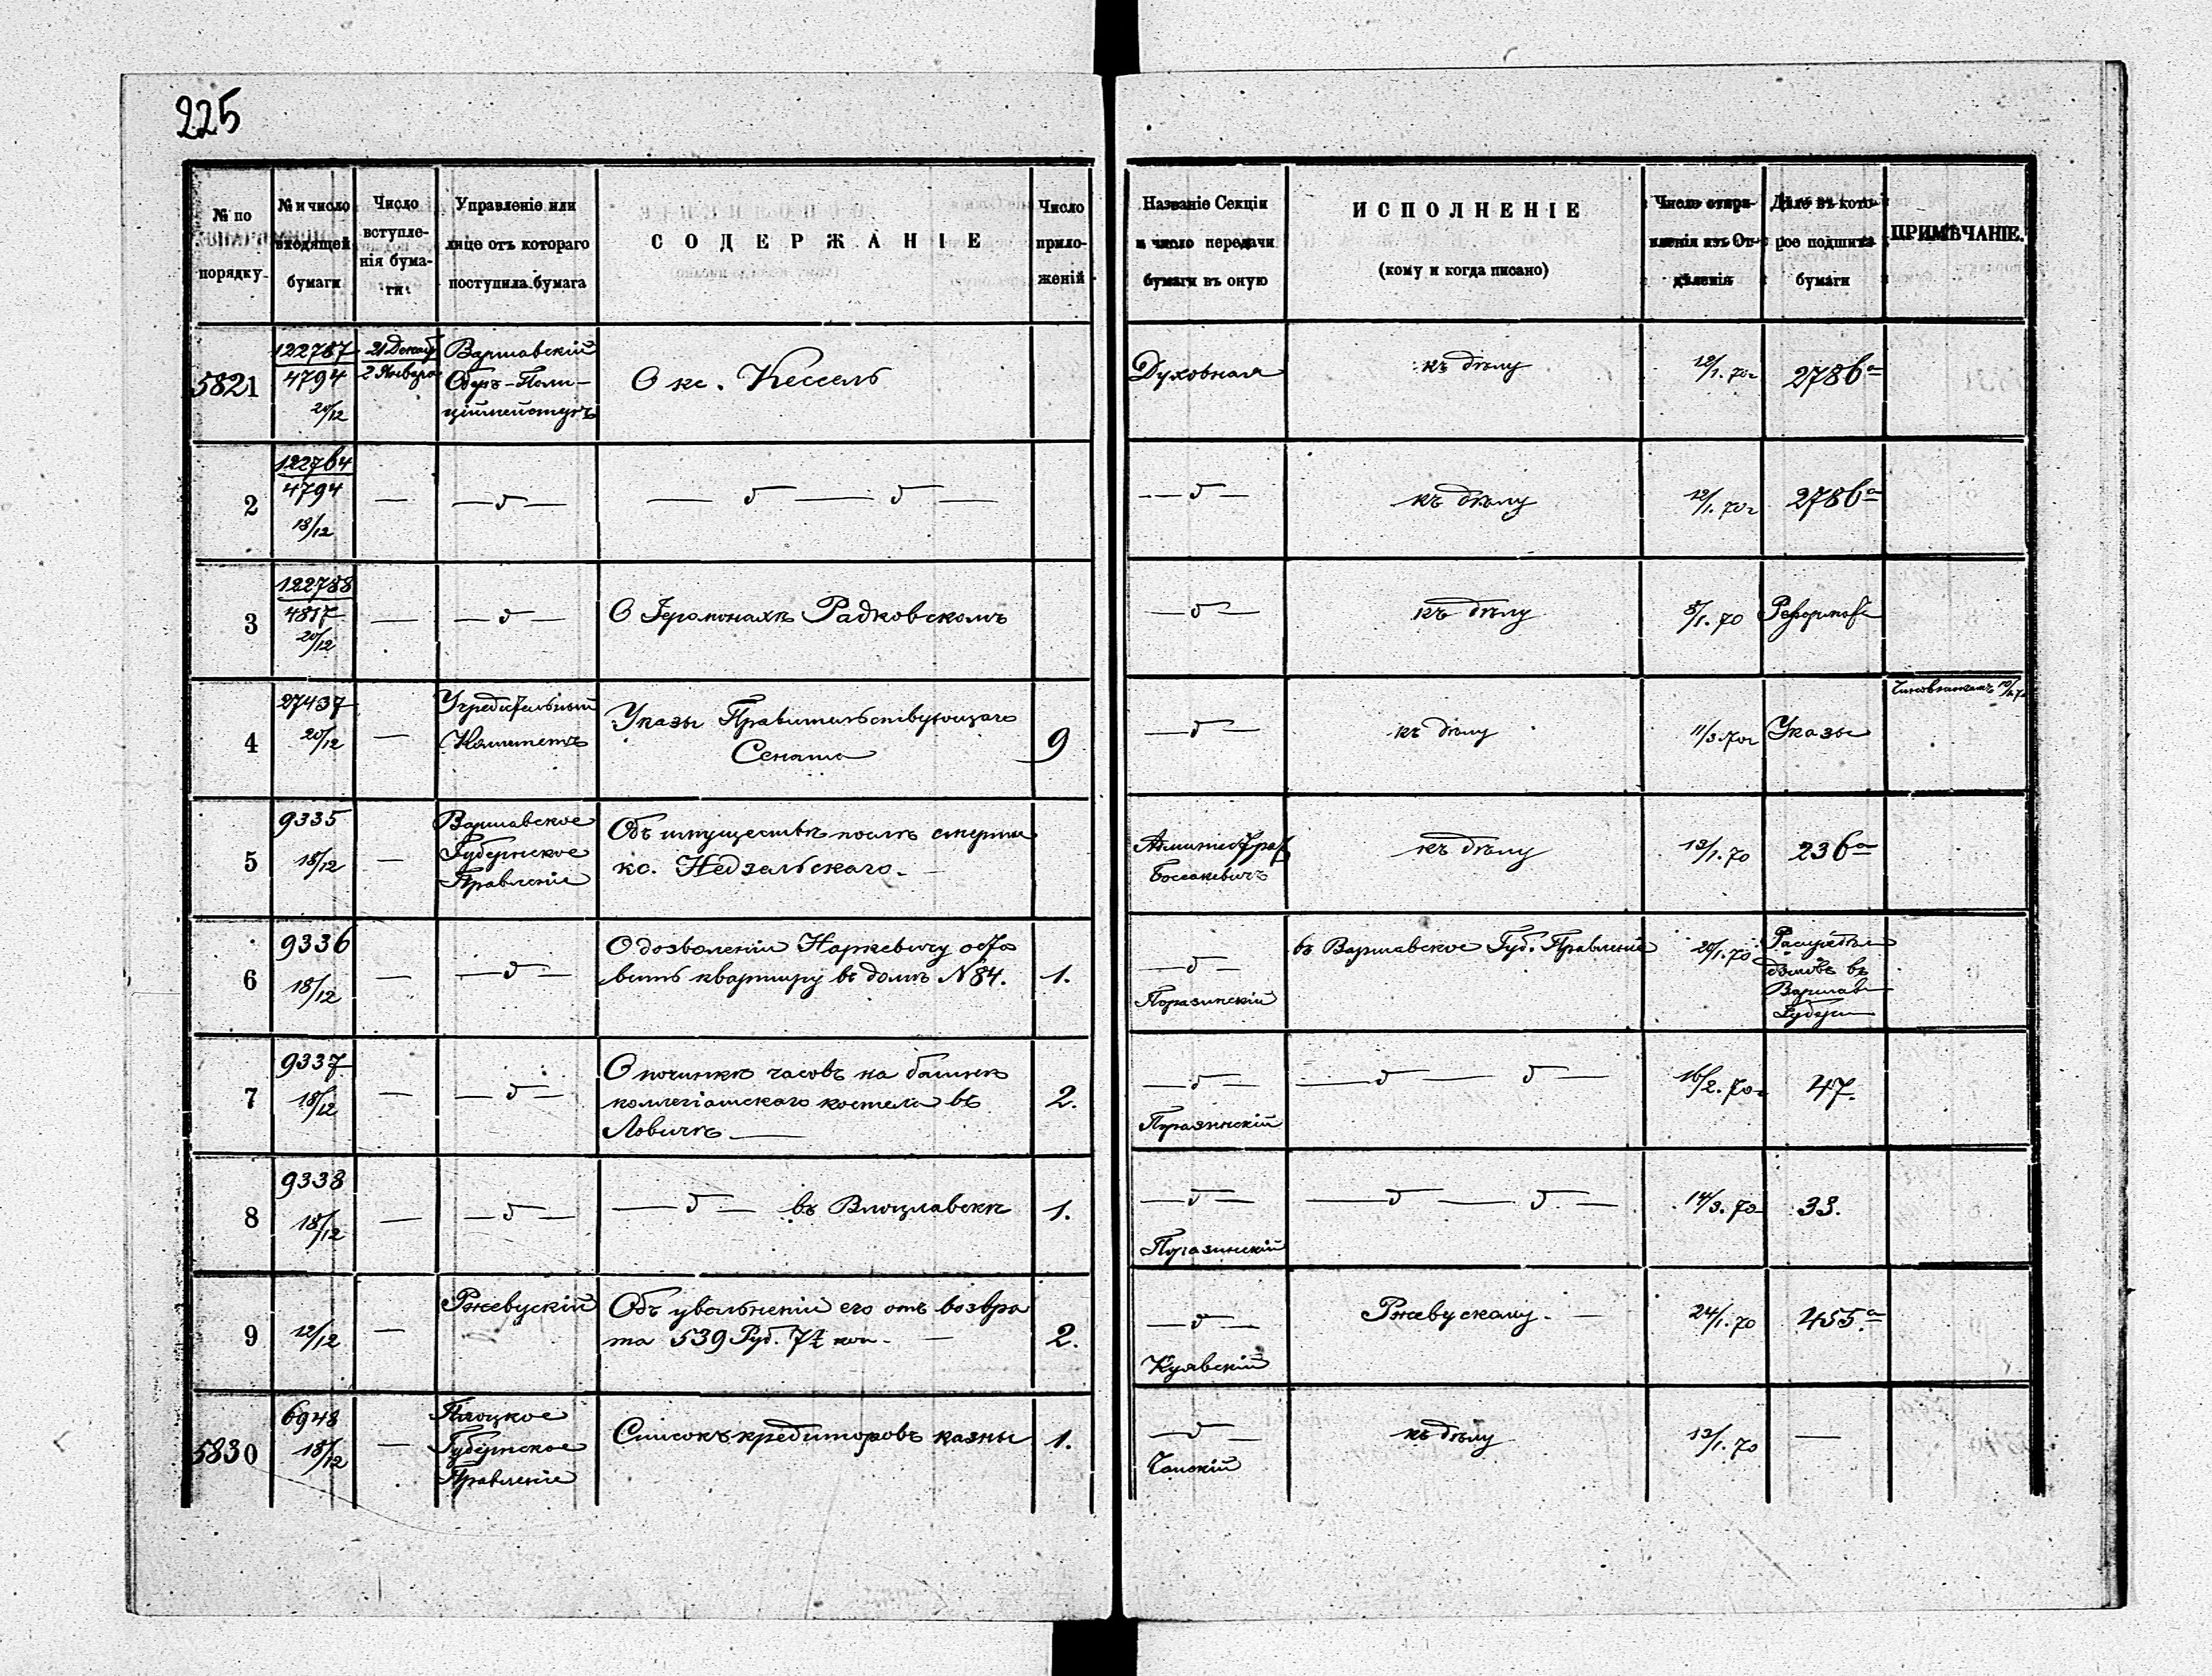 225
№ по порядку.
№ и число входящей бумаги
Число вступле-нія бума-ги
Управленіе или лице отъ котораго поступила бумага
СОДЕРЖАНІЕ
Число прило-женій
Названіе Секціи и число передачи бумаги въ оную
ИСПОЛНЕНІЕ
(кому и когда писано)
Число отпра-вленія изъ От-дѣленія
Дѣло въ кото-рое подшита бумаги
ПРИМѢЧАНІЕ.
5821
122787
4794
20/12
21 Декаб
2 Января
Варшавскій
Оберъ-Поли-
ціймейстеръ
О кс. Кессель
Духовная
къ дѣлу
12/1. 70г
2786а
2
122764
4794
18/12
—
—〃—
—〃—〃—
—〃—
къ дѣлу
12/1. 70г
2786а
3
122788
4817
20/12
—
—〃—
О Іеромонахѣ Радковскомъ
—〃—
къ дѣлу
5/1. 70
4
27437
20/12
—
Учредительный
Комитетъ
Указы Правительствующаго
Сената
9
—〃—
къ дѣлу
11/3. 70г
Указы
5
9335
18/12
—
Варшавское
Губернское
Правленіе
Объ имуществѣ послѣ смерти
кс. Недзельскаго. —
къ дѣлу
13/1. 70
236а
6
9336
18/12
—
—〃—
О дозволеніи Наркевичу оста
вить квартиру въ домѣ N 84.
1.
—〃—
Поразинскій
въ Варшавское Губ. Правленіе
20/1. 70
Распредѣл
домовъ въ
Варшав
Губерн
7
9337
18/12
—
—〃—
О починкѣ часовъ на башнѣ
коллегіатскаго костела въ
Ловичѣ —
2.
—〃—
Поразинскій
—〃—〃—
16/2. 70г
47.
8
9338
18/12
—
—〃—
—〃— въ Влоцлавскѣ
1.
—〃—
Поразинскій
—〃—〃—
14/3. 70
33.
9
12/12
—
Ржевускій
Объ увольненіи его отъ возвра
та 539 Руб. 74 коп. —
2.
—〃—
Куявскій
Ржевускому. —
24/1. 70
455.а
5830
6948
18/12
—
Плоцкое
Губернское
Правленіе
Списокъ кредиторовъ казны
1.
—〃—
къ дѣлу
13/1. 70
—